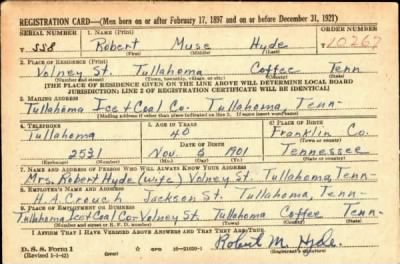 REGISTRATION CARD—(Men born on or after February 17, 1897 and on or before December 31, 1921)
SERIAL NUMBER 1. NAME (Print) ORDER NUMBER
558 Robert Muse Hyde 10267
(First) (Middle) (Last)
2. PLACE OF RESIDENCE (Print)
Volney St. Tullahoma Coffee Tenn
(Number and street) (Town, township, village, or city) (County) (State)
(THE PLACE OF RESIDENCE GIVEN ON THE LINE ABOVE WILL DETERMINE LOCAL BOARD
JURISDICTION; LINE 2 OF REGISTRATION CERTIFICATE WILL BE IDENTICAL)
3. MAILING ADDRESS
Tullahoma Ice & Coal Co. Tullahoma, Tenn-
(Mailing address if other than place indicated on line 2. If same insert word same)
4. TELEPHONE 5. AGE IN YEARS 6. PLACE OF BIRTH
Tullahoma 40 Franklin Co.
DATE OF BIRTH (Town or county)
2531 Nov. 6 1901 Tennessee
(Exchange) (Number) (Mo.) (Day) (Yr.) (State or country)
7. NAME AND ADDRESS OF PERSON WHO WILL ALWAYS KNOW YOUR ADDRESS
Mrs. Robert Hyde (wife) Volney St. Tullahoma, Tenn-
8. EMPLOYER'S NAME AND ADDRESS
H. A. Crouch Jackson St. Tullahoma, Tenn-
9. PLACE OF EMPLOYMENT OR BUSINESS
Tullahoma Ice & Coal Co- Volney St. Tullahoma Coffee Tenn-
(Number and street or R. F. D. number) (Town) (County) (State)
I AFFIRM THAT I HAVE VERIFIED ABOVE ANSWERS AND THAT THEY ARE TRUE.
D. S. S. Form 1
(Revised 1-1-42) (over) 16-21630-1
Robert M. Hyde
(Registrant's signature)